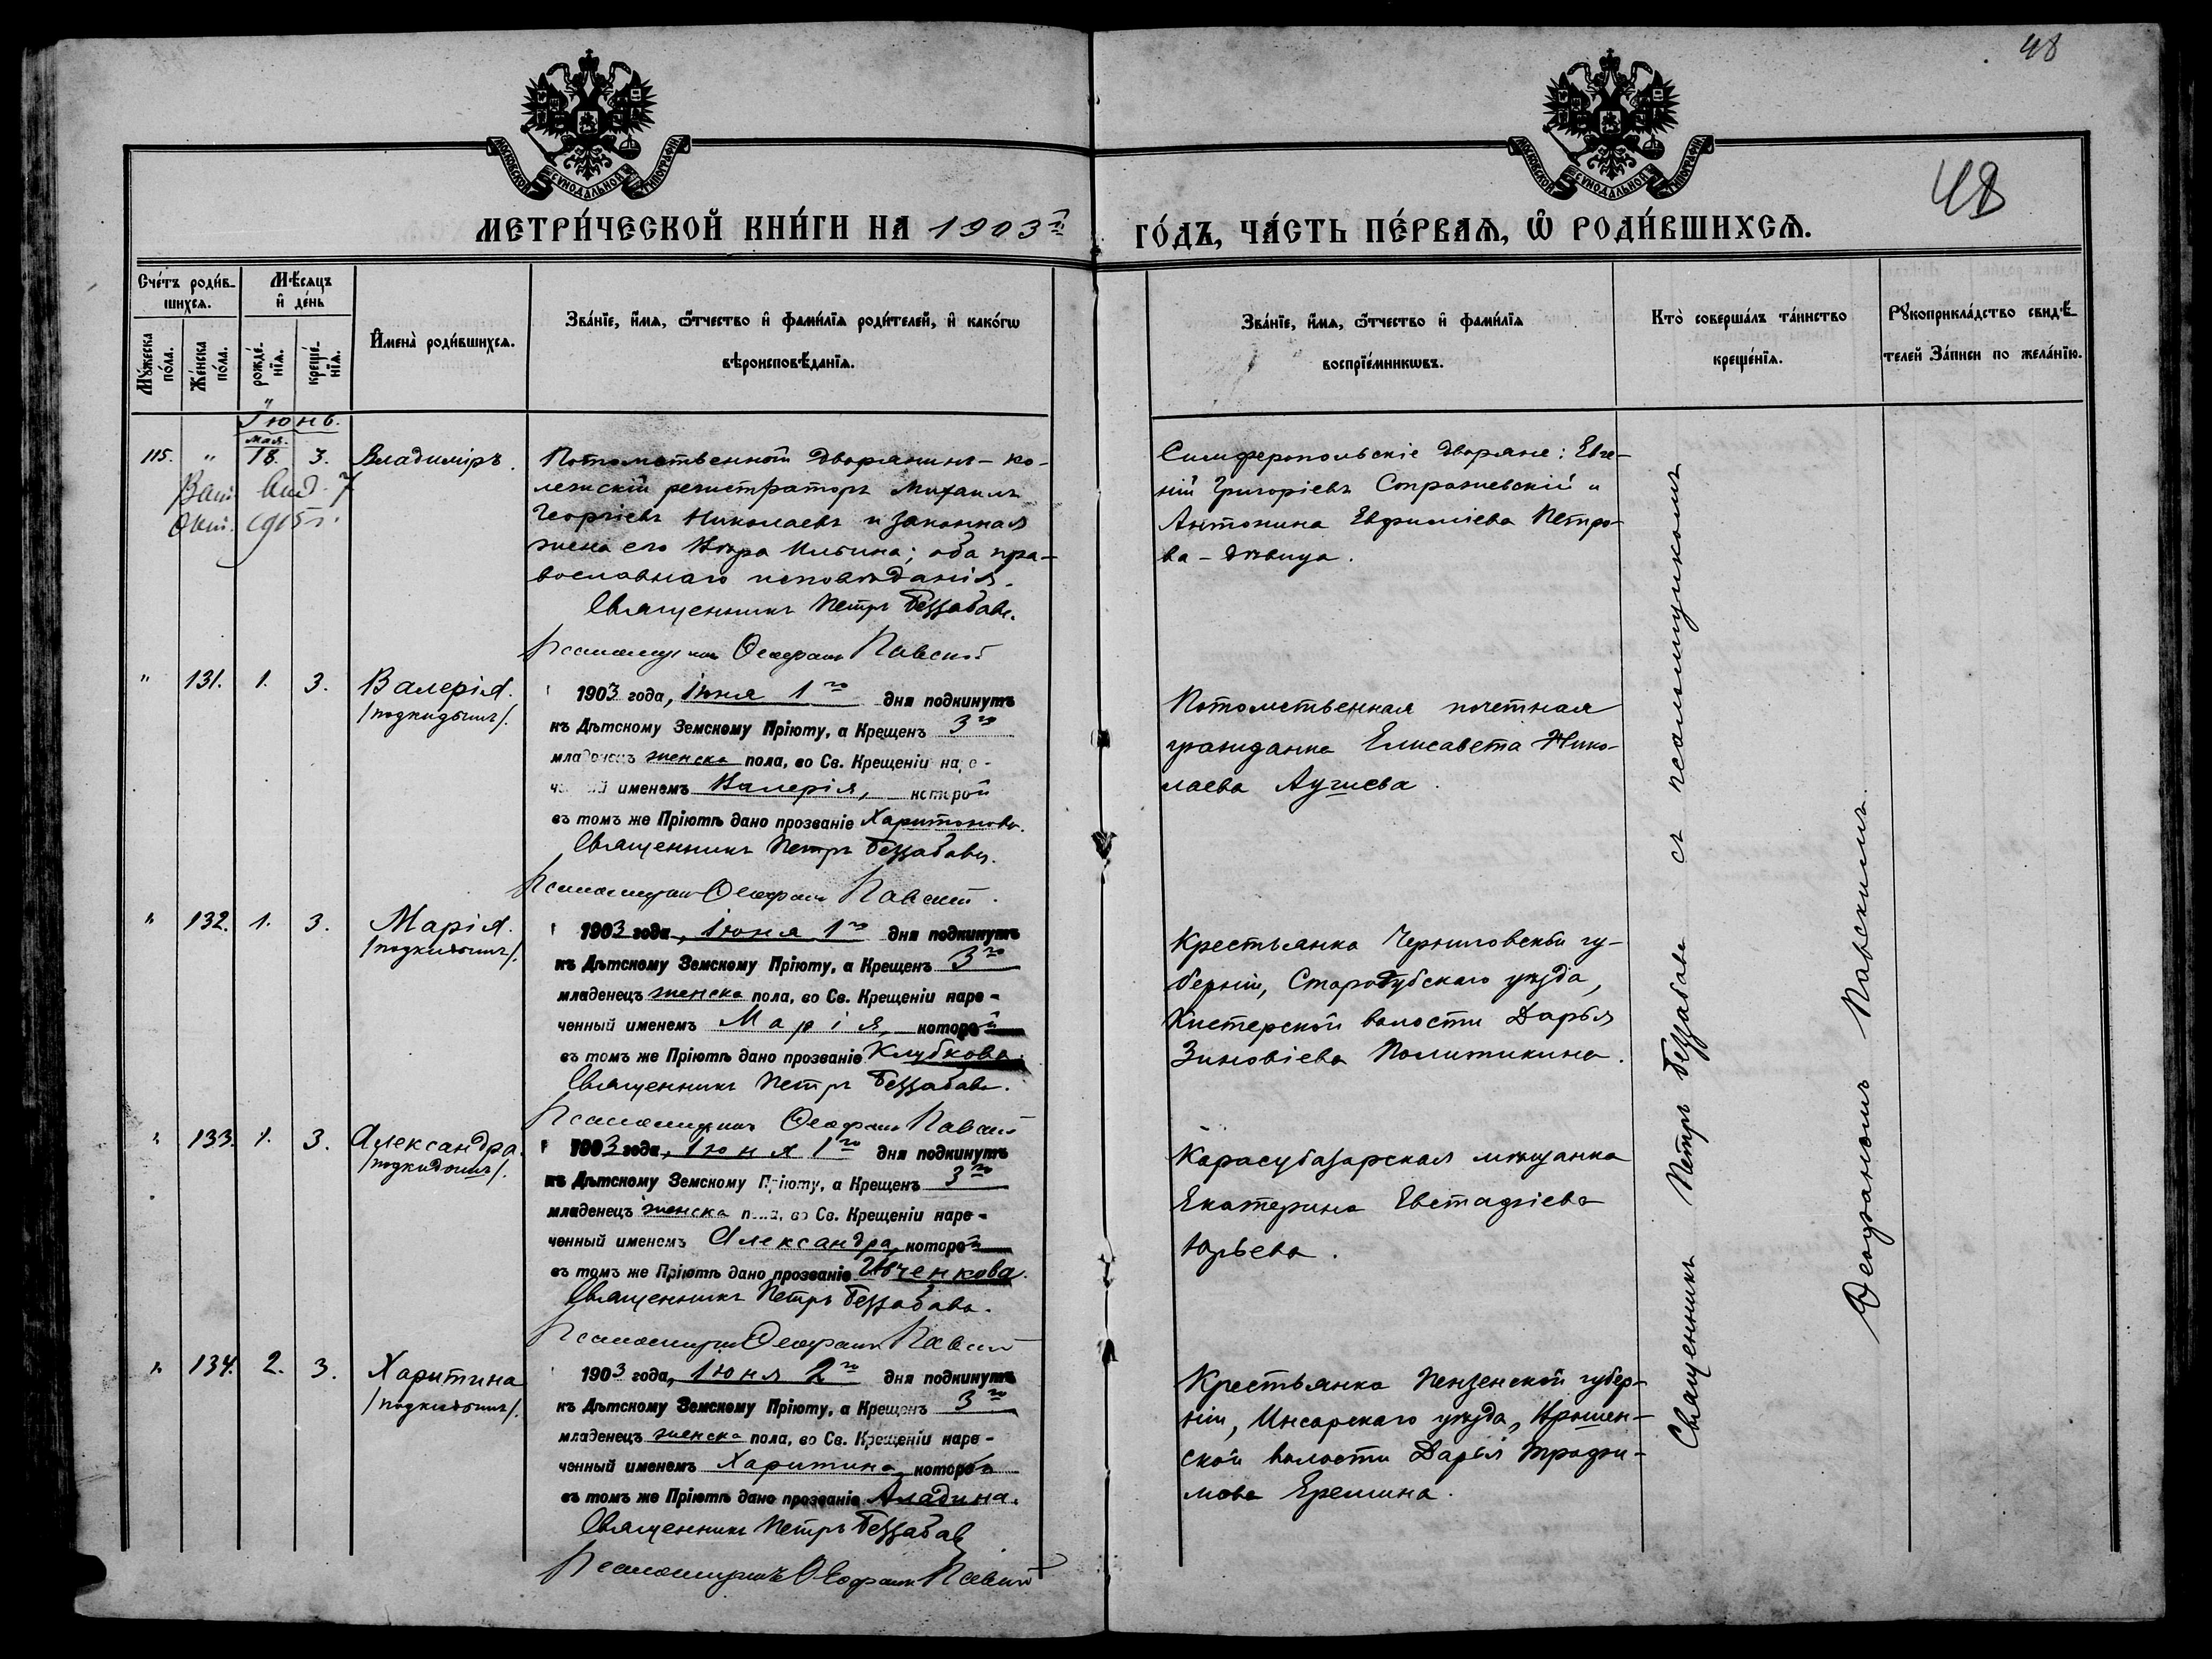 48
48
МЕТРИ́ЧЕСКОЙ КНИ́ГИ НА 1903й ГО́ДЪ, ЧА́СТЬ ПЕ́РВАѦ, Ѡ҆ РОДИ́ВШИХСѦ.
МОСКОВСКОЙ СѴНОДАЛЬНОЙ ТИПОГРАФІИ
МОСКОВСКОЙ СѴНОДАЛЬНОЙ ТИПОГРАФІИ
Сче́тъ роди́в-
шихсѧ.
Мꙋ́жеска по́ла.
Же́нска по́ла.
Мѣ́сяцъ
и҆ де́нь
рожде́-
нїѧ.
креще́-
нїѧ.
И҆мена̀ роди́вшихсѧ.
Зва́нїе, и҆́мѧ, ѻ҆́тчество и҆ фами́лїѧ роди́телей, и҆ како́гѡ
вѣроисповѣ́данїѧ.
Зва́нїе, и҆́мѧ, ѻ҆́тчество и҆ фами́лїѧ
воспрїе́мникѡвъ.
Кто̀ соверша́лъ та́инство
креще́нїѧ.
Рꙋкоприкла́дство свидѣ́-
телей За́писи по жела́нїю.
Іюнь.
мая.
115. " 18. 3. Владиміръ.
1915 г.
Потомственный дворянинъ – ко-
лежскій регистраторъ Михаилъ
Георгіевъ Николаевъ и законная
жена его Вѣра Ильина; оба пра-
вославнаго исповѣданія.
Священникъ Петръ Беззабавъ.
Псаломщикъ Ѳеофанъ Павскій
Симферопольскіе дворяне: Евге-
ній Григоріевъ Сопражевскій и
Антонина Евфиміева Петро-
ва – дѣвица.
" 131. 1. 3. Валерія.
/подкидышъ/.
1903 года, Іюня 1го дня подкинутъ
къ Дѣтскому Земскому Пріюту, а Крещенъ 3го
младенецъ женска пола, во Св. Крещеніи наре-
ченный именемъ Валерія, которой
въ томъ же Пріютѣ дано прозваніе Харитонова.
Священникъ Петръ Беззабавъ.
Псаломщикъ Ѳеофанъ Павскій.
Потомственная почетная
гражданка Елисавета Нико-
лаева
" 132. 1. 3. Марія.
/подкидышъ/.
1903 года, Іюня 1го дня подкинутъ
къ Дѣтскому Земскому Пріюту, а Крещенъ 3го
младенецъ женска пола, во Св. Крещеніи наре-
ченный именемъ Марія, которой
въ томъ же Пріютѣ дано прозваніе Клубкова.
Священникъ Петръ Беззабавъ.
Псаломщикъ Ѳеофанъ Павскій
Крестьянка Черниговской гу-
берніи, Стародубскаго уѣзда,
Кистерской волости Дарья
Зиновіева Политикина.
" 133. 1. 3. Александра.
/подкидышъ/.
1903 года, Іюня 1го дня подкинутъ
къ Дѣтскому Земскому Пріюту, а Крещенъ 3го
младенецъ женска пола, во Св. Крещеніи наре-
ченный именемъ Александра, которой
въ томъ же Пріютѣ дано прозваніе Ивченкова.
Священникъ Петръ Беззабавъ.
Псаломщикъ Ѳеофанъ Павскій
Карасубазарская мѣщанка
Екатерина Евстафіева
Юрьева.
" 134. 2. 3. Харитина
/подкидышъ/.
1903 года, Іюня 2го дня подкинутъ
къ Дѣтскому Земскому Пріюту, а Крещенъ 3го
младенецъ женска пола, во Св. Крещеніи наре-
ченный именемъ Харитина, которой
въ томъ же Пріютѣ дано прозваніе Аладина.
Священникъ Петръ Беззабавъ
Псаломщикъ Ѳеофанъ Павскій
Крестьянка Пензенской губер-
ніи, Инсарскаго уѣзда,
ской волости Дарья Трофи-
мова Еремина.
Священникъ Петръ Беззабавъ съ псаломщикомъ
Ѳеофаномъ Павскимъ.